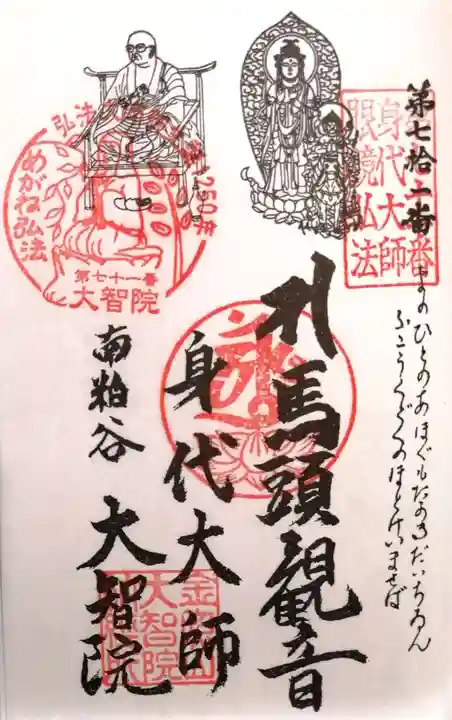 第七拾一番
よのひとのあほぐもたかきだいちゐん
ふこうくどくのほとけいませば
身代大師
眼鏡弘法
札馬頭観音
身代大師
南粕谷
大智院
めがね弘法
弘法
250年
第七十一番
大智院
大智院